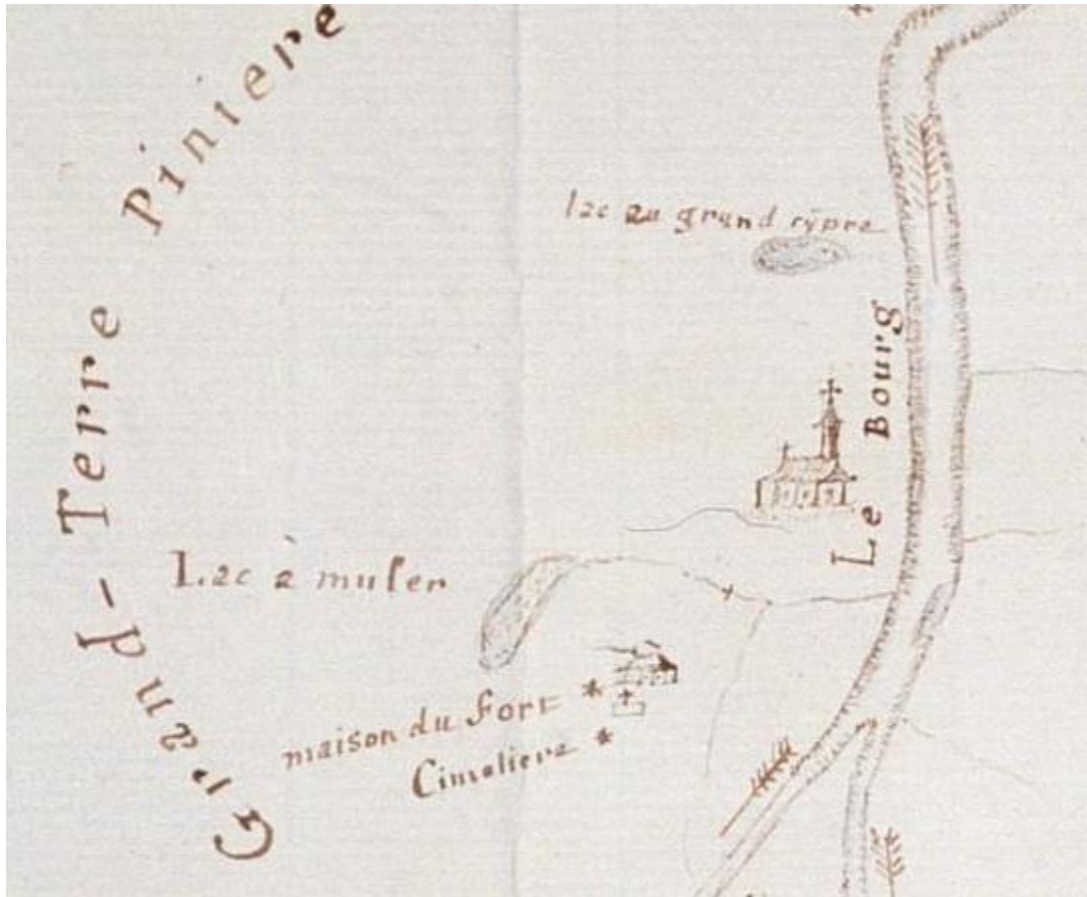 Grand-Terre Piniere
lac au grand cÿpre
Le Bourg
Lac à muler
maison du Fort *
Cimetiere *